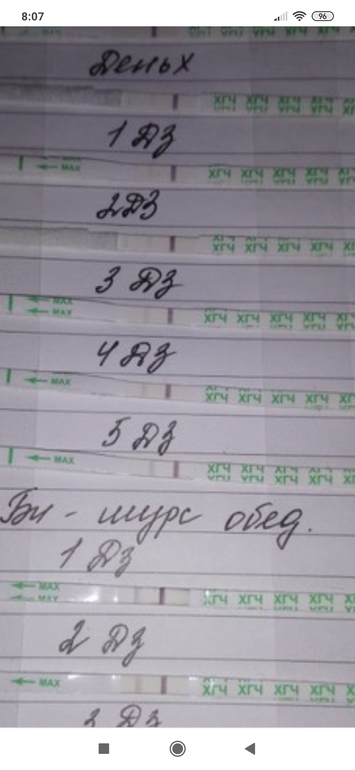 8:07
96
ХГЧ ХГЧ ХГЧ ХГЧ
День х
ХГЧ ХГЧ ХГЧ ХГЧ
1 ДЗ
MAX ХГЧ ХГЧ ХГЧ ХГЧ
2 ДЗ
ХГЧ ХГЧ ХГЧ ХГЧ
3 ДЗ
MAX
MAX ХГЧ ХГЧ ХГЧ ХГЧ
4 ДЗ
MAX ХГЧ ХГЧ ХГЧ ХГЧ
5 ДЗ
MAX ХГЧ ХГЧ ХГЧ ХГЧ
обед.
1 ДЗ
MAX
MAX ХГЧ ХГЧ ХГЧ ХГЧ
2 ДЗ
MAX ХГЧ ХГЧ ХГЧ ХГЧ
3 ДЗ